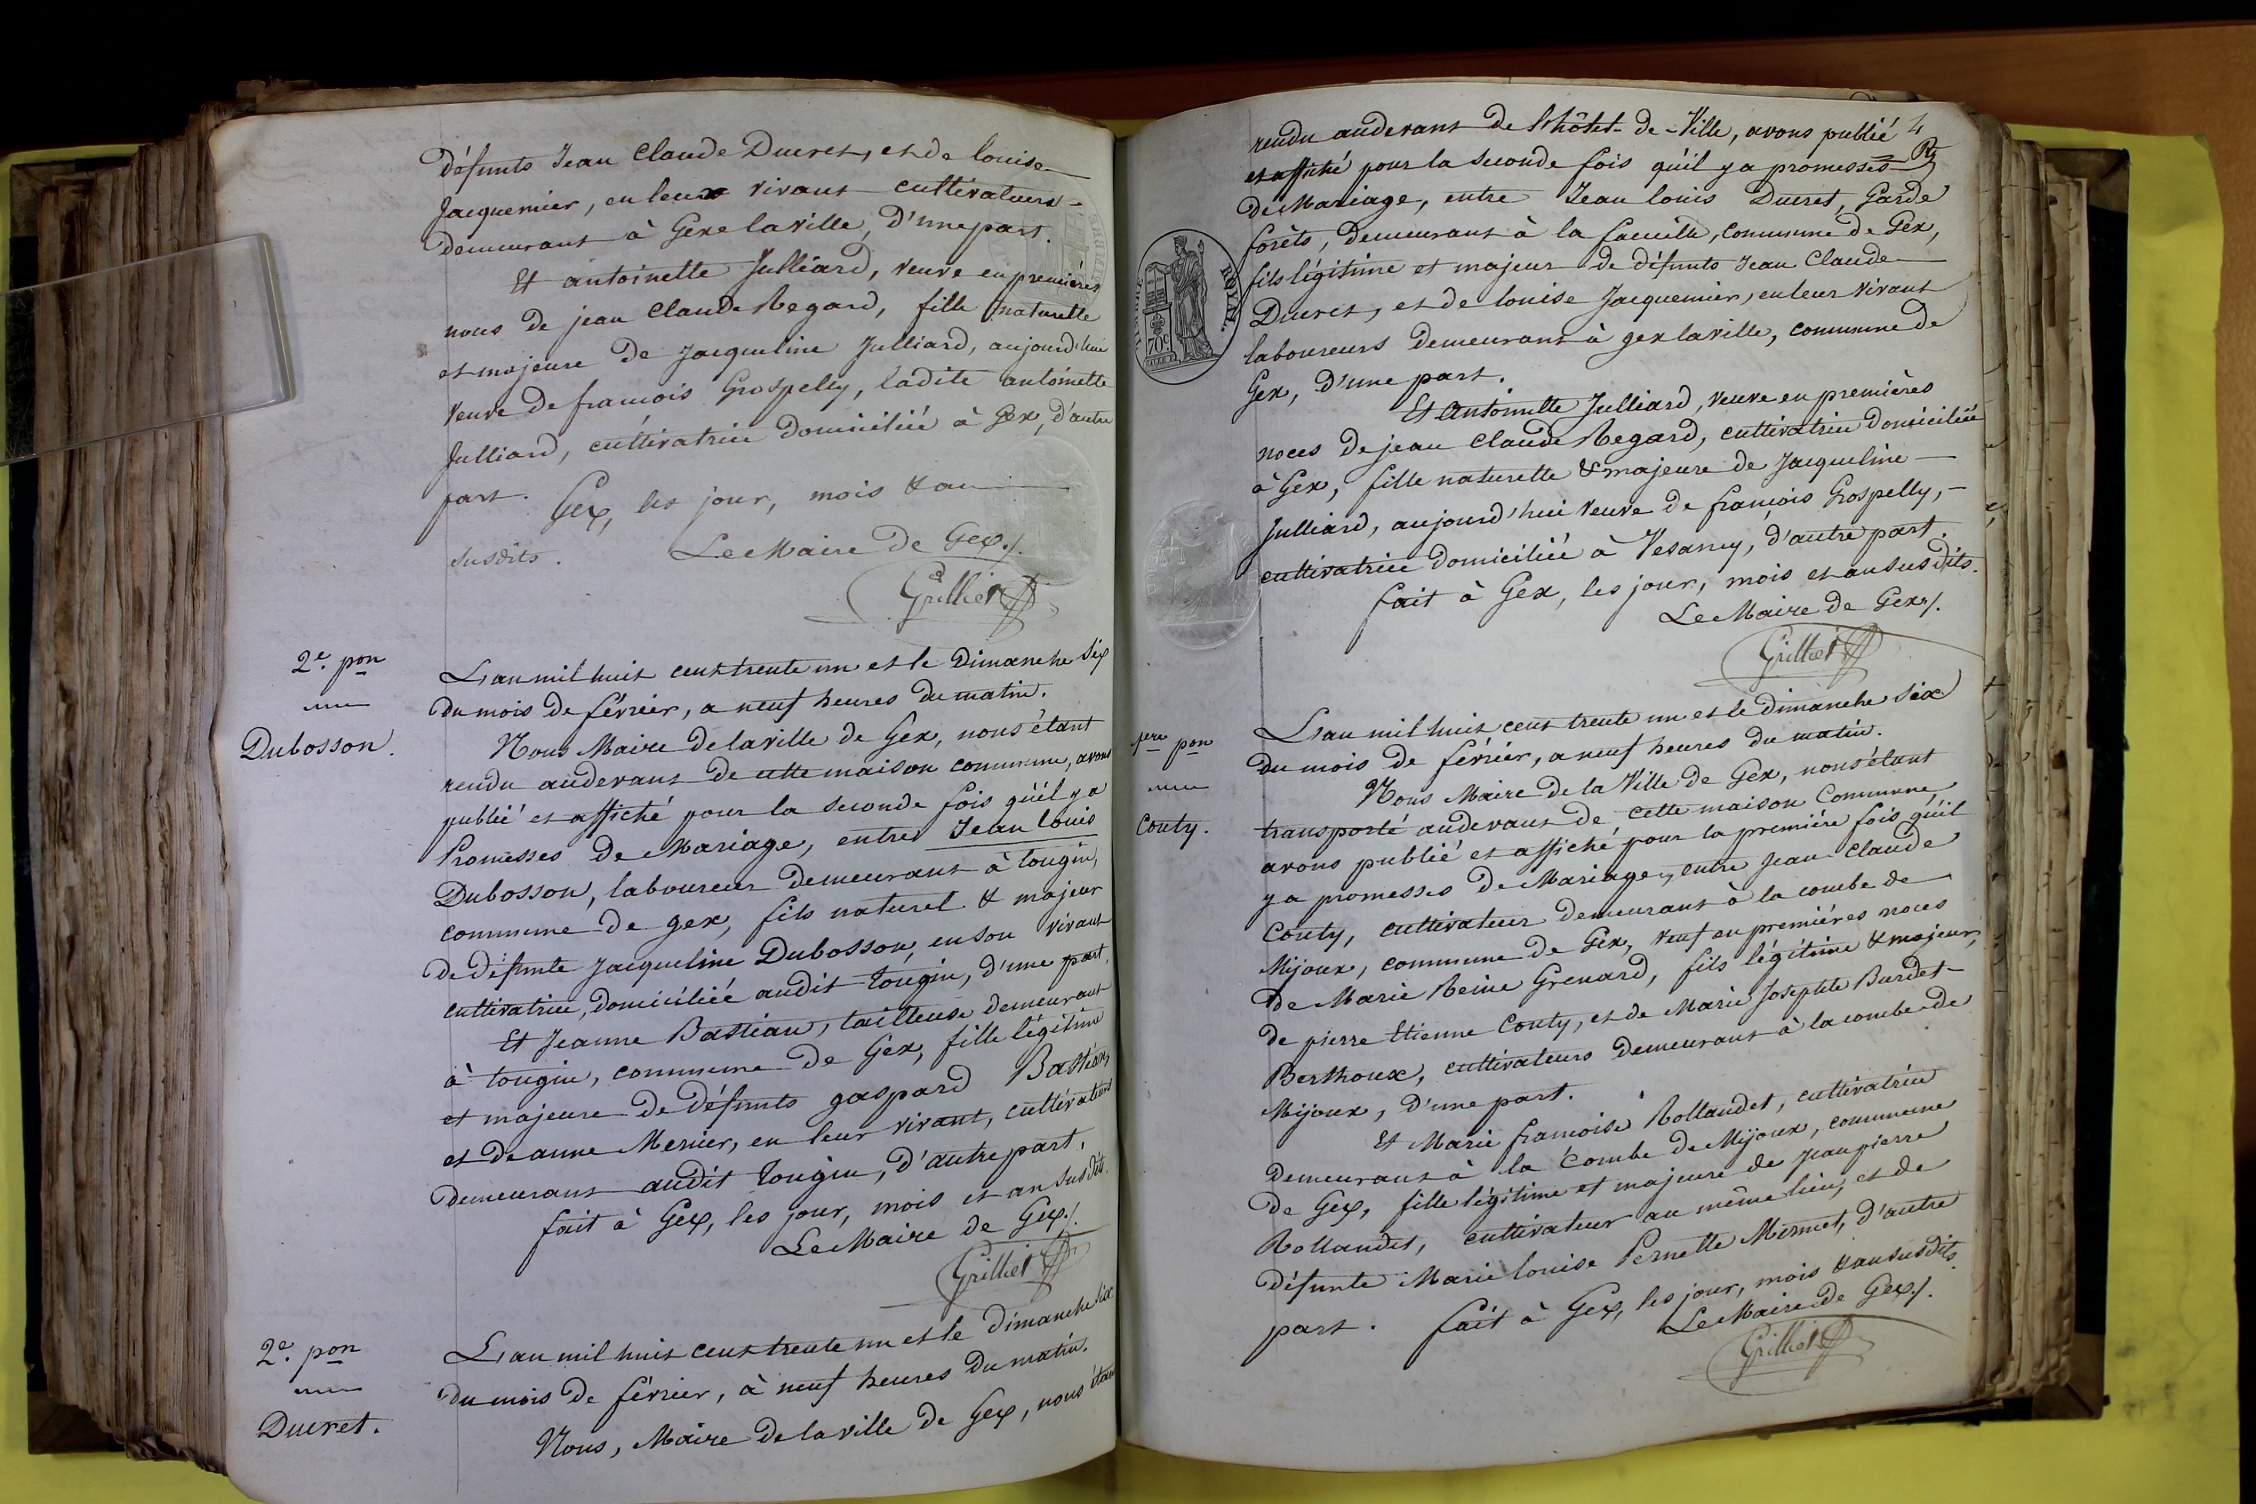 défunts Jean Claude Ducret, et de louise
Jacquemier, en leur vivant cultivateurs
demeurant à Gex la ville, D'une part.
Et antoinette Julliard, veuve en premières
noces de jean Claude Regard, fille naturelle
et majeure de Jacqueline Julliard, aujourd'hui
veuve de francois Grospelly, ladite antoinette
Julliard, cultivatrice domiciliée à Gex, d'autre
part. Gex, les jour, mois & an
susdits. Le Maire de Gex./.
Grilliet
2e. pon
Dubosson.
L'an mil huit cent trente un et le Dimanche six
du mois de février, a neuf heures du matin.
Nous Maire de la ville de Gex, nous étant
rendu audevant de cette maison commune, avons
publié et affiché pour la seconde fois qu'il y a
Promesses de Mariage, entre Jean louis
Dubosson, laboureur demeurant à tougin,
commune de gex, fils naturel & majeur
de défunte Jacqueline Dubosson, en son vivant
cultivatrice, domiciliée audit tougin, d'une part,
Et Jeanne Bastian, tailleuse demeurant
à tougin, commune de Gex, fille légitime
et majeure de défunts gaspard Bastian,
et de anne Mernier, en leur vivant, cultivateurs
demeurant audit tougin, d'autre part,
fait à Gex, les jour, mois et an susdits.
Le Maire de Gex./.
Grilliet
2e. pon
Ducret.
L'an mil huit cent trente un et le dimanche six
du mois de février, à neuf heures du matin.
Nous, Maire de la ville de Gex, nous étant
4
rendu audevant de l'hôtel-de-Ville, avons publié
et affiché pour la seconde fois qu'il y a promesses
de Mariage, entre Jean louis Ducret, Garde
forêts, demeurant à la faucille, commune de Gex,
fils légitime et majeur de défunts Jean Claude
Ducret, et de louise Jacquemier, en leur vivant
laboureurs demeurant à gex la ville, commune de
Gex, d'une part.
TIMBRE ROYAL
70c
Et Antoinette Julliard, veuve en premières
noces de jean Claude Regard, cultivatrice domiciliée
à Gex, fille naturelle & majeure de Jacqueline
Julliard, aujourd'hui veuve de françois Grospelly,
cultivatrice domiciliée à Vesancy, d'autre part.
fait à Gex, les jour, mois et an susdits.
Le Maire de Gex./.
Grilliet
1ere pon
Couty.
L'an mil huit cent trente un et le dimanche six
du mois de février, a neuf heures du matin.
Nous Maire de la Ville de Gex, nous étant
transporté audevant de cette maison Commune
avons publié et affiché pour la première fois qu'il
y a promesses de Mariage, entre Jean Claude
Couty, cultivateur demeurant à la combe de
Mijoux, commune de Gex, veuf en premières noces
de Marie Reine Grenard, fils légitime & majeur,
de pierre Etienne Couty, et de Marie Josephte Burdet
Berthoux, cultivateurs demeurant à la combe de
Mijoux, d'une part.
Et Marie francoise Rollandet, cultivatrice
demeurant à la Combe de Mijoux, commune
de Gex, fille légitime et majeure de Jean pierre
Rollandet, cultivateur au même lieu, et de
défunte Marie louise Pernette Mermet, d'autre
part. fait à Gex, les jour, mois & an susdits
Le Maire de Gex./.
Grilliet